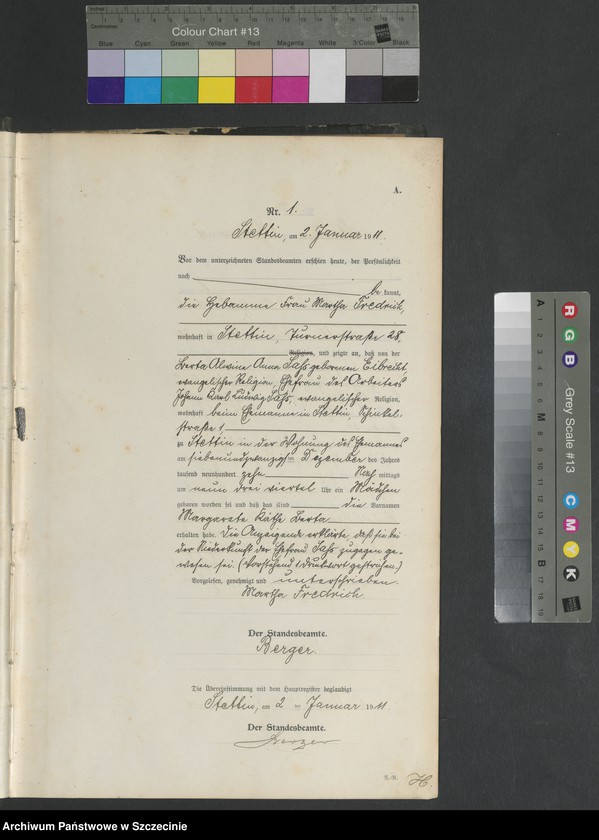 Colour Chart #13
Blue Cyan Green Yellow Red Magenta White 3/Color Black
A.
Nr. 1.
Stettin, am 2. Januar 1911.
Vor dem unterzeichneten Standesbeamten erschien heute, der Persönlichkeit
nach
be kannt,
die Hebamme Frau Martha Fredrich,
wohnhaft in Stettin, Turnerstraße 28,
Religion, und zeigte an, daß von der
Berta Alwine Anna Saß geborenen Eibrecht,
evangelischer Religion, Ehefrau des Arbeiters
Johann Karl Ludwig Saß, evangelischer Religion,
wohnhaft beim Ehemanne in Stettin, Schinkel-
straße 1,
zu Stettin in der Wohnung des Ehemannes
am siebenundzwanzigsten Dezember des Jahres
tausend neunhundert zehn Nachmittags
um neun drei viertel Uhr ein Mädchen
geboren worden sei und daß das Kind die Vornamen
Margarete Käthe Berta
erhalten habe. Die Anzeigende erklärte, daß sie bei
der Niederkunft der Ehefrau Saß zugegen ge-
wesen sei. (Vorstehend 1 Druckwort gestrichen.)
Vorgelesen, genehmigt und unterschrieben.
Martha Fredrich
Der Standesbeamte.
Berger.
Die Übereinstimmung mit dem Hauptregister beglaubigt
Stettin, am 2 ten Januar 1911
Der Standesbeamte.
Berger
H.
Grey Scale #13
A 1 2 3 4 5 6 M 8 9 10 11 12 13 14 15 B 17 18 19
R G B
C M Y K
Archiwum Państwowe w Szczecinie